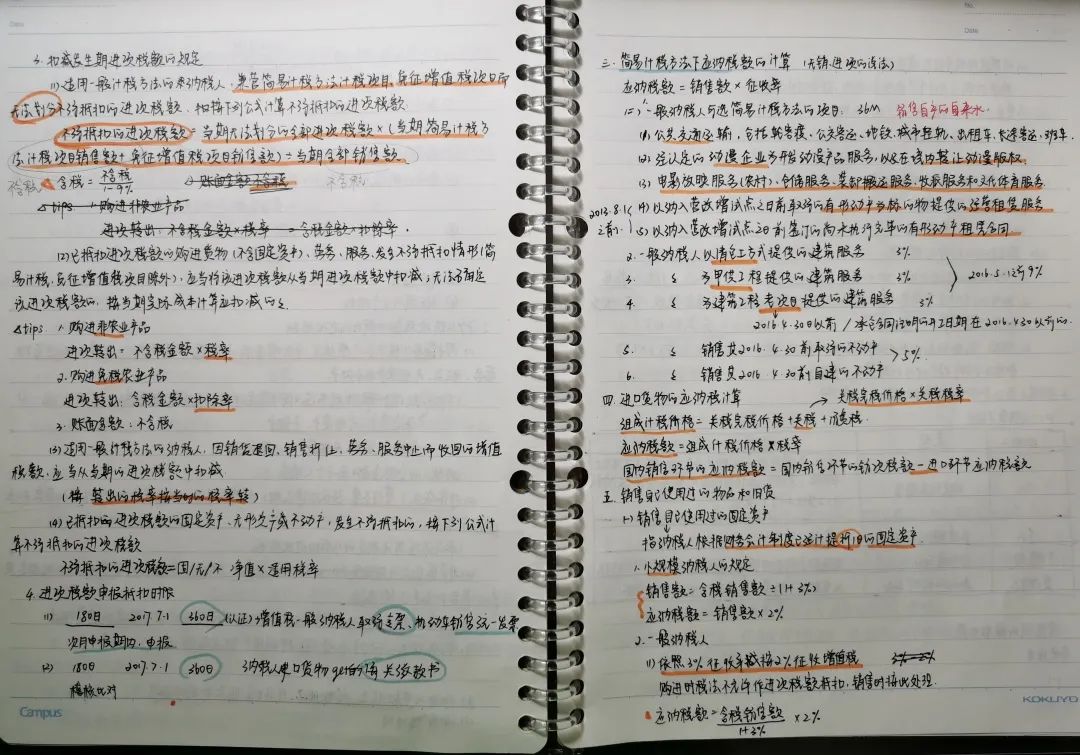 Date
3. 扣减发生期进项税额的规定
(1)适用一般计税方法的纳税人,兼营简易计税方法计税项目,免征增值税项目而
无法划分不得抵扣的进项税额,扣按下列公式计算不得抵扣的进项税额
不得抵扣的进项税额=当期无法划分的全部进项税额×(当期简易计税方
法计税项目销售额+免征增值税项目销售额)÷当期全部销售额
含税=不含税/1-9% 账面金额不含税 不含税
△tips 1.购进非农业产品
进项转出:不含税金额×税率 =含税金额×扣除率.
(2)已抵扣进项税额的购进货物(不含固定资产)、劳务、服务,发生不得抵扣情形(简
易计税,免征增值税项目除外),应当将该进项税额从当期进项税额中扣减;无法确定
该进项税额的,按当期实际成本计算应扣减的
△tips 1.购进非农业产品
进项转出:不含税金额×税率
2.购进免税农业产品
进项转出:含税金额×扣除率
3.账面金额:不含税
(3)适用一般计税方法的纳税人,因销货退回、销售折让、劳务、服务中止而收回的增值
税额,应当从当期的进项税额中扣减
(按 转出的税率按当时的税率转)
(4)已抵扣的进项税额的固定资产、无形资产或不动产,发生不得抵扣的,按下列公式计
算不得抵扣的进项税额
不得抵扣的进项税额=固/无/不 净值×适用税率
4.进项税额申报抵扣时限
(1) 180日 2017.7.1 360日 (认证)增值税一般纳税人取得专票、机动车销售统一发票
次月申报期内,申报
(2) 180日 2017.7.1 360日 纳税人进口货物get的海关缴款书
稽核比对
Campus
No.
Date
三.简易计税方法下应纳税额的计算 (无销、进项的说法)
应纳税额=销售额×征收率
(二)1.一般纳税人可选简易计税方法的项目: 36M 销售自产的自来水
(1)公共交通运输,包括轮客渡、公交客运、地铁、城市轻轨、出租车、长途客运、班车.
(2)经认定的动漫企业为开发动漫产品服务,以及在境内转让动漫版权.
(3)电影放映服务(农村)、仓储服务、装卸搬运服务、收派服务和文化体育服务
2013.8.1 (4)以纳入营改增试点之日前取得的有形动产为标的物提供的经营租赁服务
之前. (5)以纳入营改增试点之日前签订的尚未执行完毕的有形动产租赁合同
2.一般纳税人以清包工方式提供的建筑服务 3%
3. 为甲供工程提供的建筑服务 3%
4. 为建筑工程老项目提供的建筑服务 3%
2016.4.30日以前 / 承包合同注明的开工日期在2016.4.30以前的.
5. 销售其2016.4.30前取得的不动产 >5%
6. 销售其2016.4.30前自建的不动产
四.进口货物的应纳税计算 → 关税完税价格×关税税率
组成计税价格=关税完税价格+关税+消费税
应纳税额=组成计税价格×税率
国内销售环节的应纳税额=国内销售环节的销项税额-进口环节应纳税额
五.销售自己使用过的物品和旧货
(一)销售自己使用过的固定资产
指纳税人根据财务会计制度已经计提折旧的固定资产.
1.小规模纳税人的规定
销售额=含税销售额÷(1+3%)
应纳税额=销售额×2%
2.一般纳税人
(1)依照3%征收率减按2%征收增值税
购进时税法不允许作进项税额抵扣,销售时按此处理.
应纳税额=含税销售额/1+3% ×2%
KOKUYO